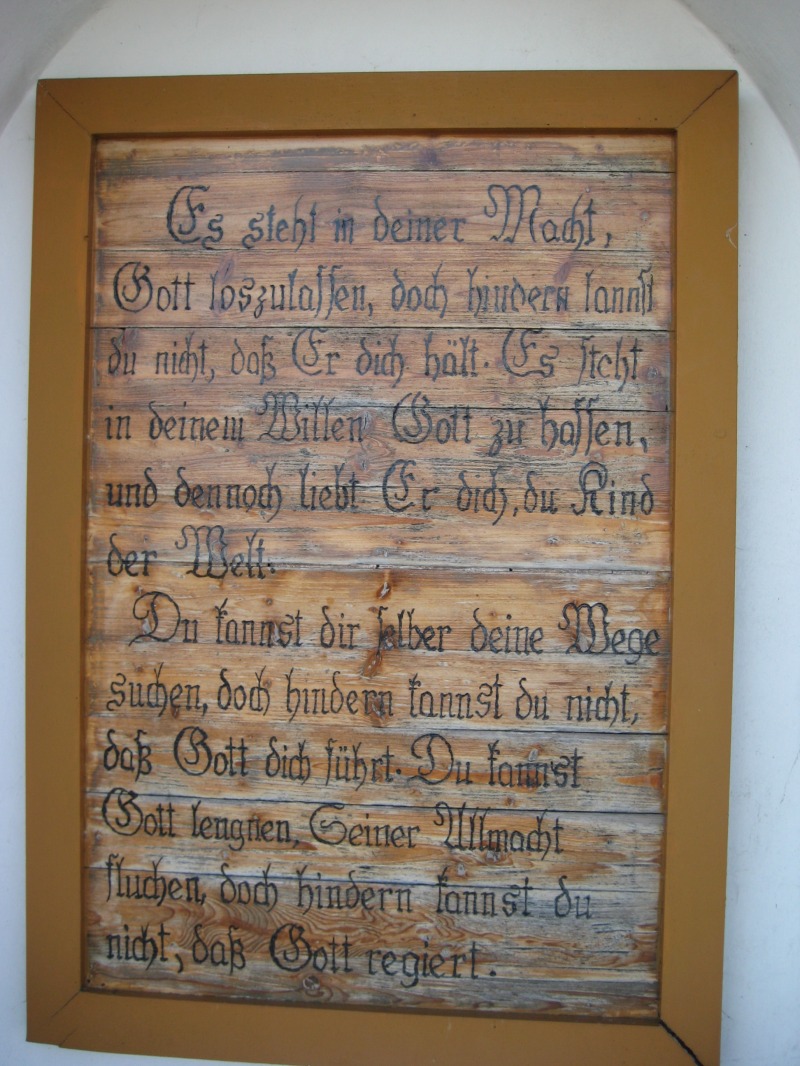 Es steht in deiner Macht,
Gott loszulassen, doch hindern kannst
du nicht, daß Er dich hält. Es steht
in deinem Willen Gott zu hassen,
und dennoch liebt Er dich, du Kind
der Welt.
Du kannst dir selber deine Wege
suchen, doch hindern kannst du nicht,
daß Gott dich führt. Du kannst
Gott leugnen, Seiner Allmacht
fluchen, doch hindern kannst du
nicht, daß Gott regiert.